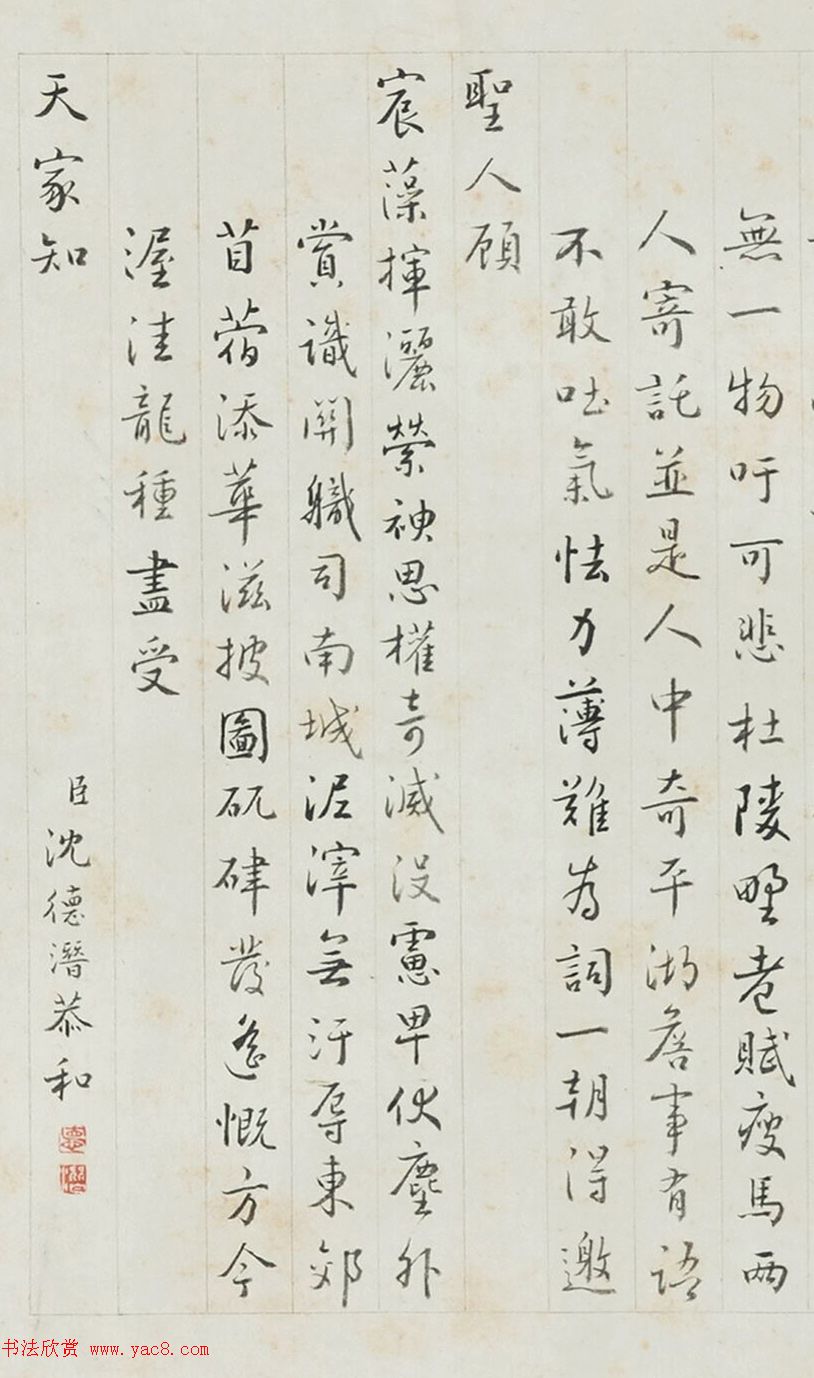 無一物吁可悲杜陵野老賦瘦馬兩
人寄託並是人中奇平湖詹事有語
不敢吐氣怯力薄難為詞一朝得邀
聖人顧
宸藻揮灑縈神思權奇滅沒慮早伏塵外
賞識開職司南城泥滓無汗辱東郊
苜蓿添華滋披圖矹硉發遙慨方今
渥洼龍種盡受
天家知
臣沈德潛恭和
德潛
书法欣赏 www.yac8.com